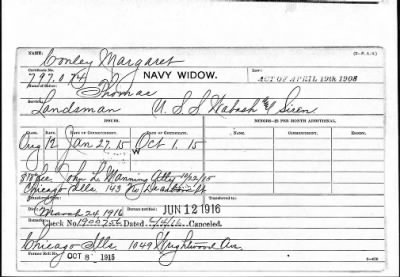 NAME: Conley Margaret
Certificate No. 797.074 NAVY WIDOW. LAW: ACT OF APRIL 19TH 1908
Name of Sailor: Thomas
Service: Landsman U.S.S Wabash & Siren
ISSUES. MINORS—$2 PER MONTH ADDITIONAL.
RATE. DATE OF COMMENCEMENT. DATE OF COMMENCEMENT. ENDING.
Aug 12 Jan 27.15 Oct 1.15
W
John L. Manning Atty
Chicago Ills 143
Transferred to:
March 24, 1916 Bureau notified: JUN 12 1916
Check No. Dated Canceled.
Chicago Ills. 1049 Wrightwood Ave
Former Roll No. OCT 8 1915